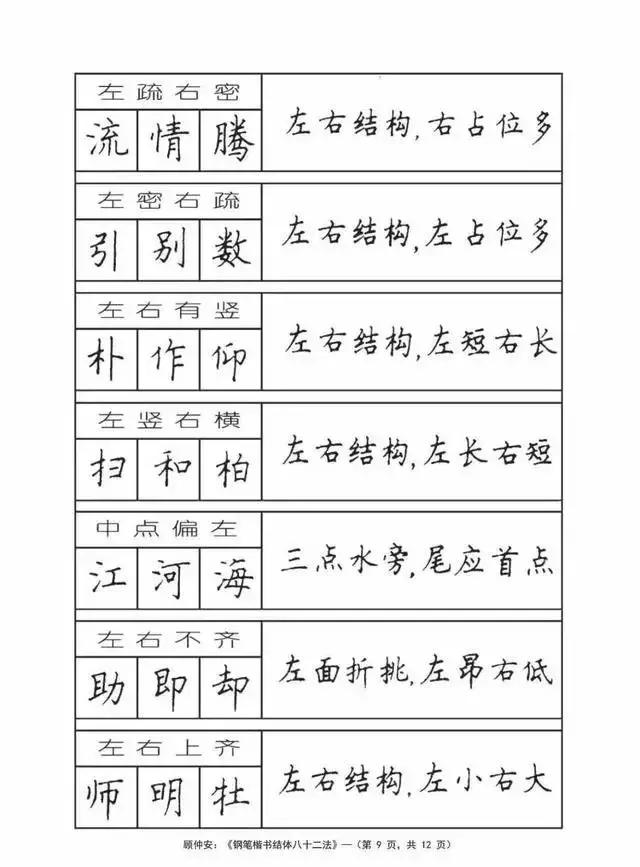 左疏右密
流情腾
左右结构,右占位多
左密右疏
引别数
左右结构,左占位多
左右有竖
朴作仰
左右结构,左短右长
左竖右横
扫和柏
左右结构,左长右短
中点偏左
江河海
三点水旁,尾应首点
左右不齐
助即却
左面折挑,左昂右低
左右上齐
师明牡
左右结构,左小右大
顾仲安：《钢笔楷书结体八十二法》—（第 9 页，共 12 页）